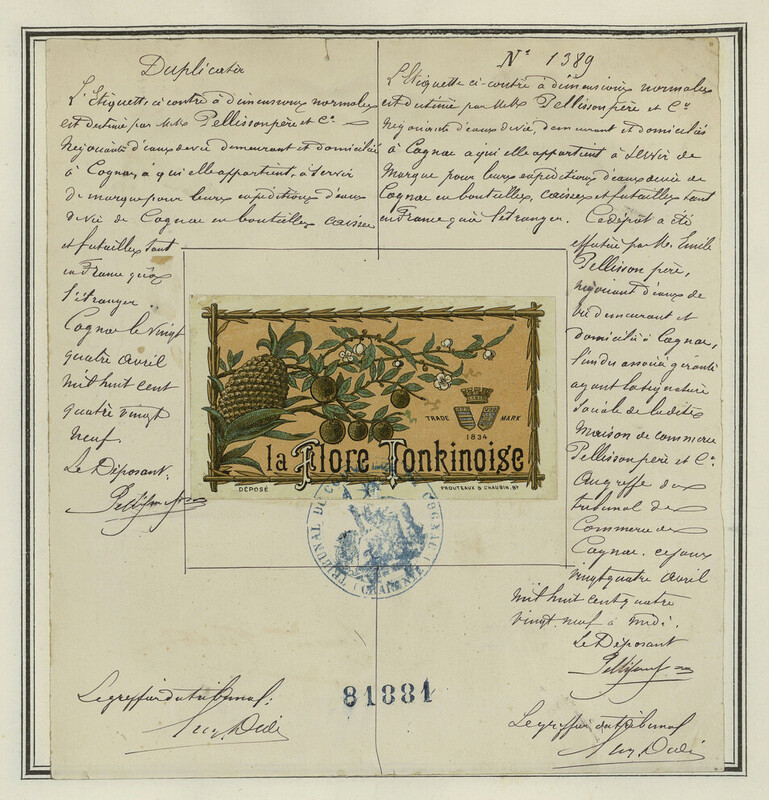 Duplicata
L'Etiquette ci contre à dimensions normales
est destinée par M.Mrs Pellisson père et Cie
Négociants d'eaux de vie demeurant et domiciliés
à Cognac, à qui elle appartient, à servir
de marque pour leurs expéditions d'eaux
de vie de Cognac en bouteilles, caisses
et futailles tant
en France qu'à
l'étranger.
Cognac le vingt
quatre avril
mil huit cent
quatre vingt
neuf.
Le Déposant.
N° 1389
L'Etiquette ci-contre à dimensions normales
est destinée par M.Mrs Pellisson père et Cie
Négociants d'eaux de vie, demeurant et domiciliés
à Cognac à qui elle appartient à servir de
Marque pour leurs expéditions d'eaux de vie de
Cognac en bouteilles, caisses et futailles tant
en France qu'à l'étranger. Ce dépôt a été
effectué par M. Emile
Pellisson père,
négociant d'eaux de
vie demeurant et
domicilié à Cognac,
l'un des associés gérants
ayant la signature
sociale de la dite
Maison de commerce
Pellisson père et Cie
Au greffe du
tribunal de
Commerce de
Cognac, ce jour
vingt quatre avril
mil huit cent quatre
vingt neuf à midi.
Le Déposant
la Flore Tonkinoise
TRADE MARK
1834
DÉPOSÉ
PROUTEAUX & CHAUBIN, BX
TRIBUNAL DE COMMERCE COGNAC (CHARENTE)
81881
Le greffier du tribunal.
Le greffier du tribunal